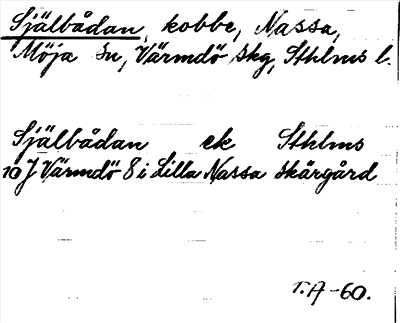 Själbådan, kobbe, Nassa,
Möja sn, Värmdö skg, Sthlms l.
Själbådan ek Sthlms
10J Värmdö 8 i Lilla Nassa skärgård
T.A-60.